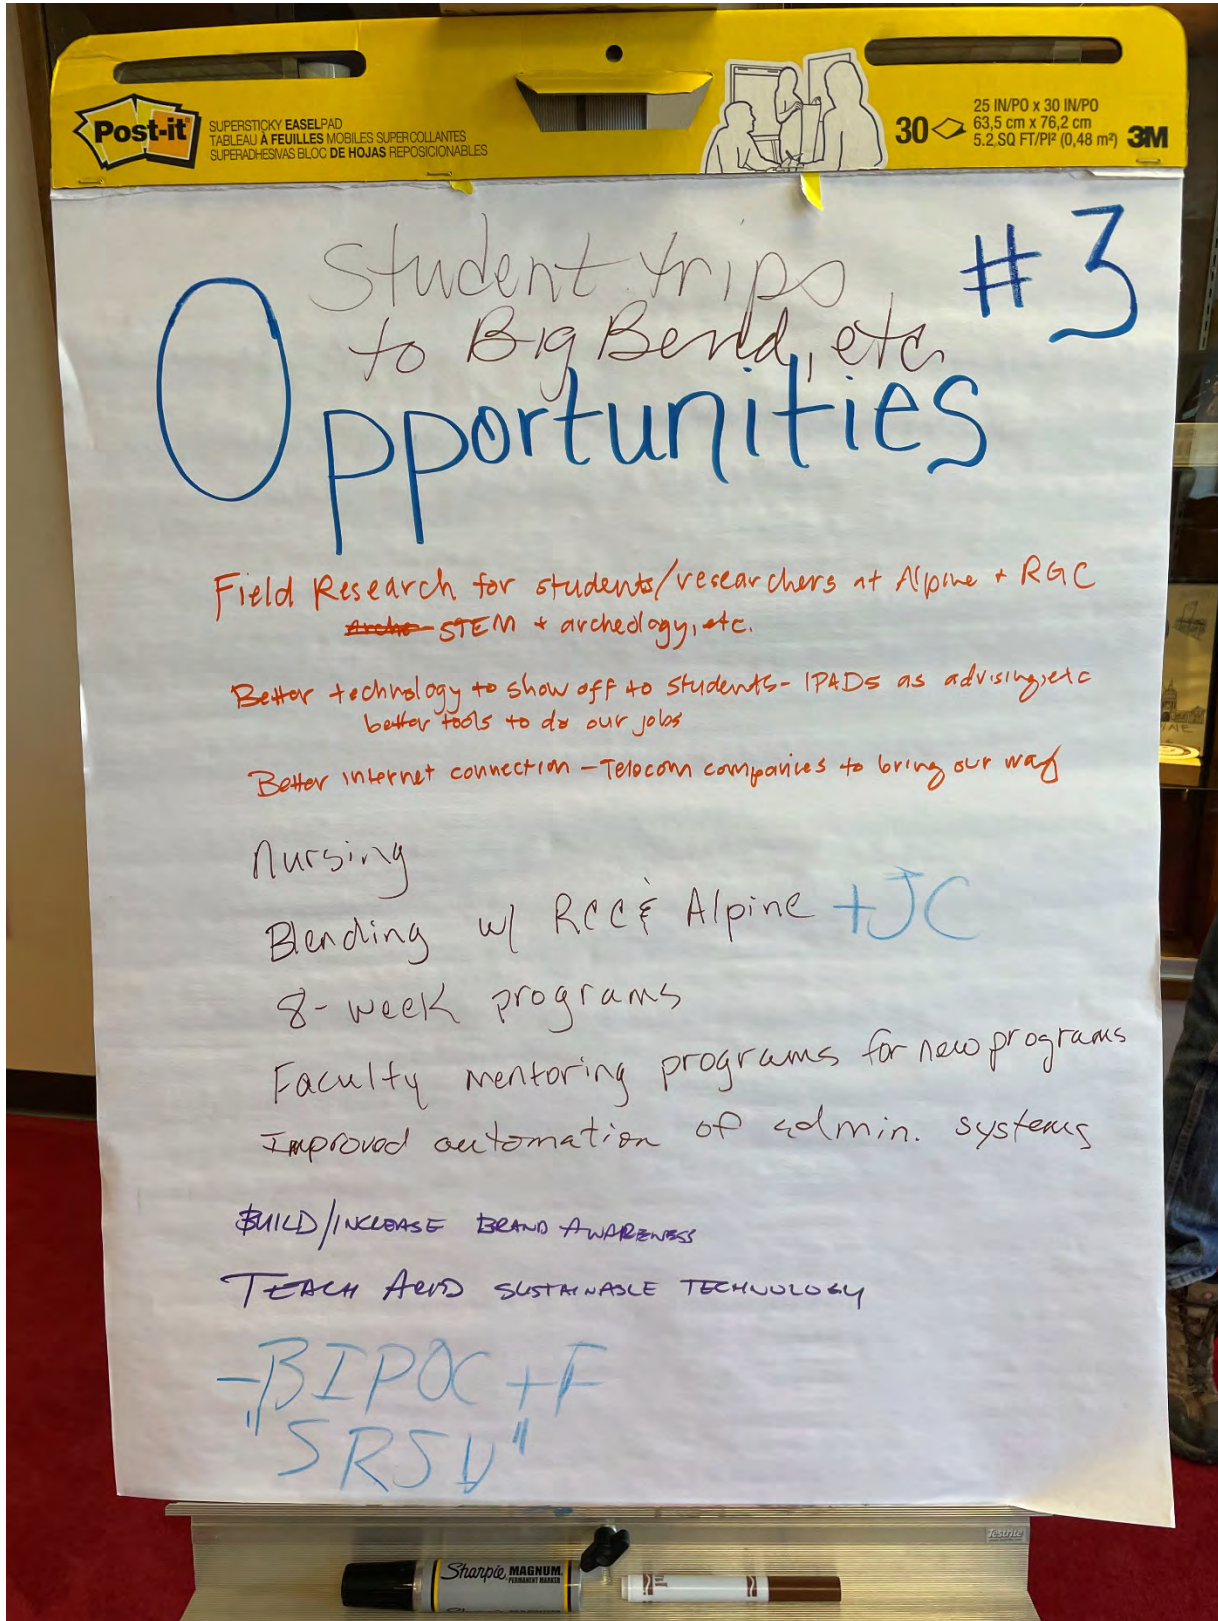 Post-it
SUPERSTICKY EASELPAD
TABLEAU À FEUILLES MOBILES SUPER COLLANTES
SUPERADHESIVAS BLOC DE HOJAS REPOSICIONABLES
30
25 IN/PO x 30 IN/PO
63,5 cm x 76,2 cm
5.2 SQ FT/PI² (0,48 m²)
3M
Student trips
to Big Bend, etc.
#3
Opportunities
Field Research for students/researchers at Alpine + RGC
STEM + archeology, etc.
Better technology to show off to students - IPADs as advising, etc
better tools to do our jobs
Better internet connection - Telecom companies to bring our way
Nursing
Blending w/ RCC & Alpine + JC
8-week programs
Faculty mentoring programs for new programs
Improved automation of admin. systems
BUILD/INCREASE BRAND AWARENESS
TEACH SUSTAINABLE TECHNOLOGY
- BIPOC + F
"SRSU"
Testrite
Sharpie MAGNUM
PERMANENT MARKER